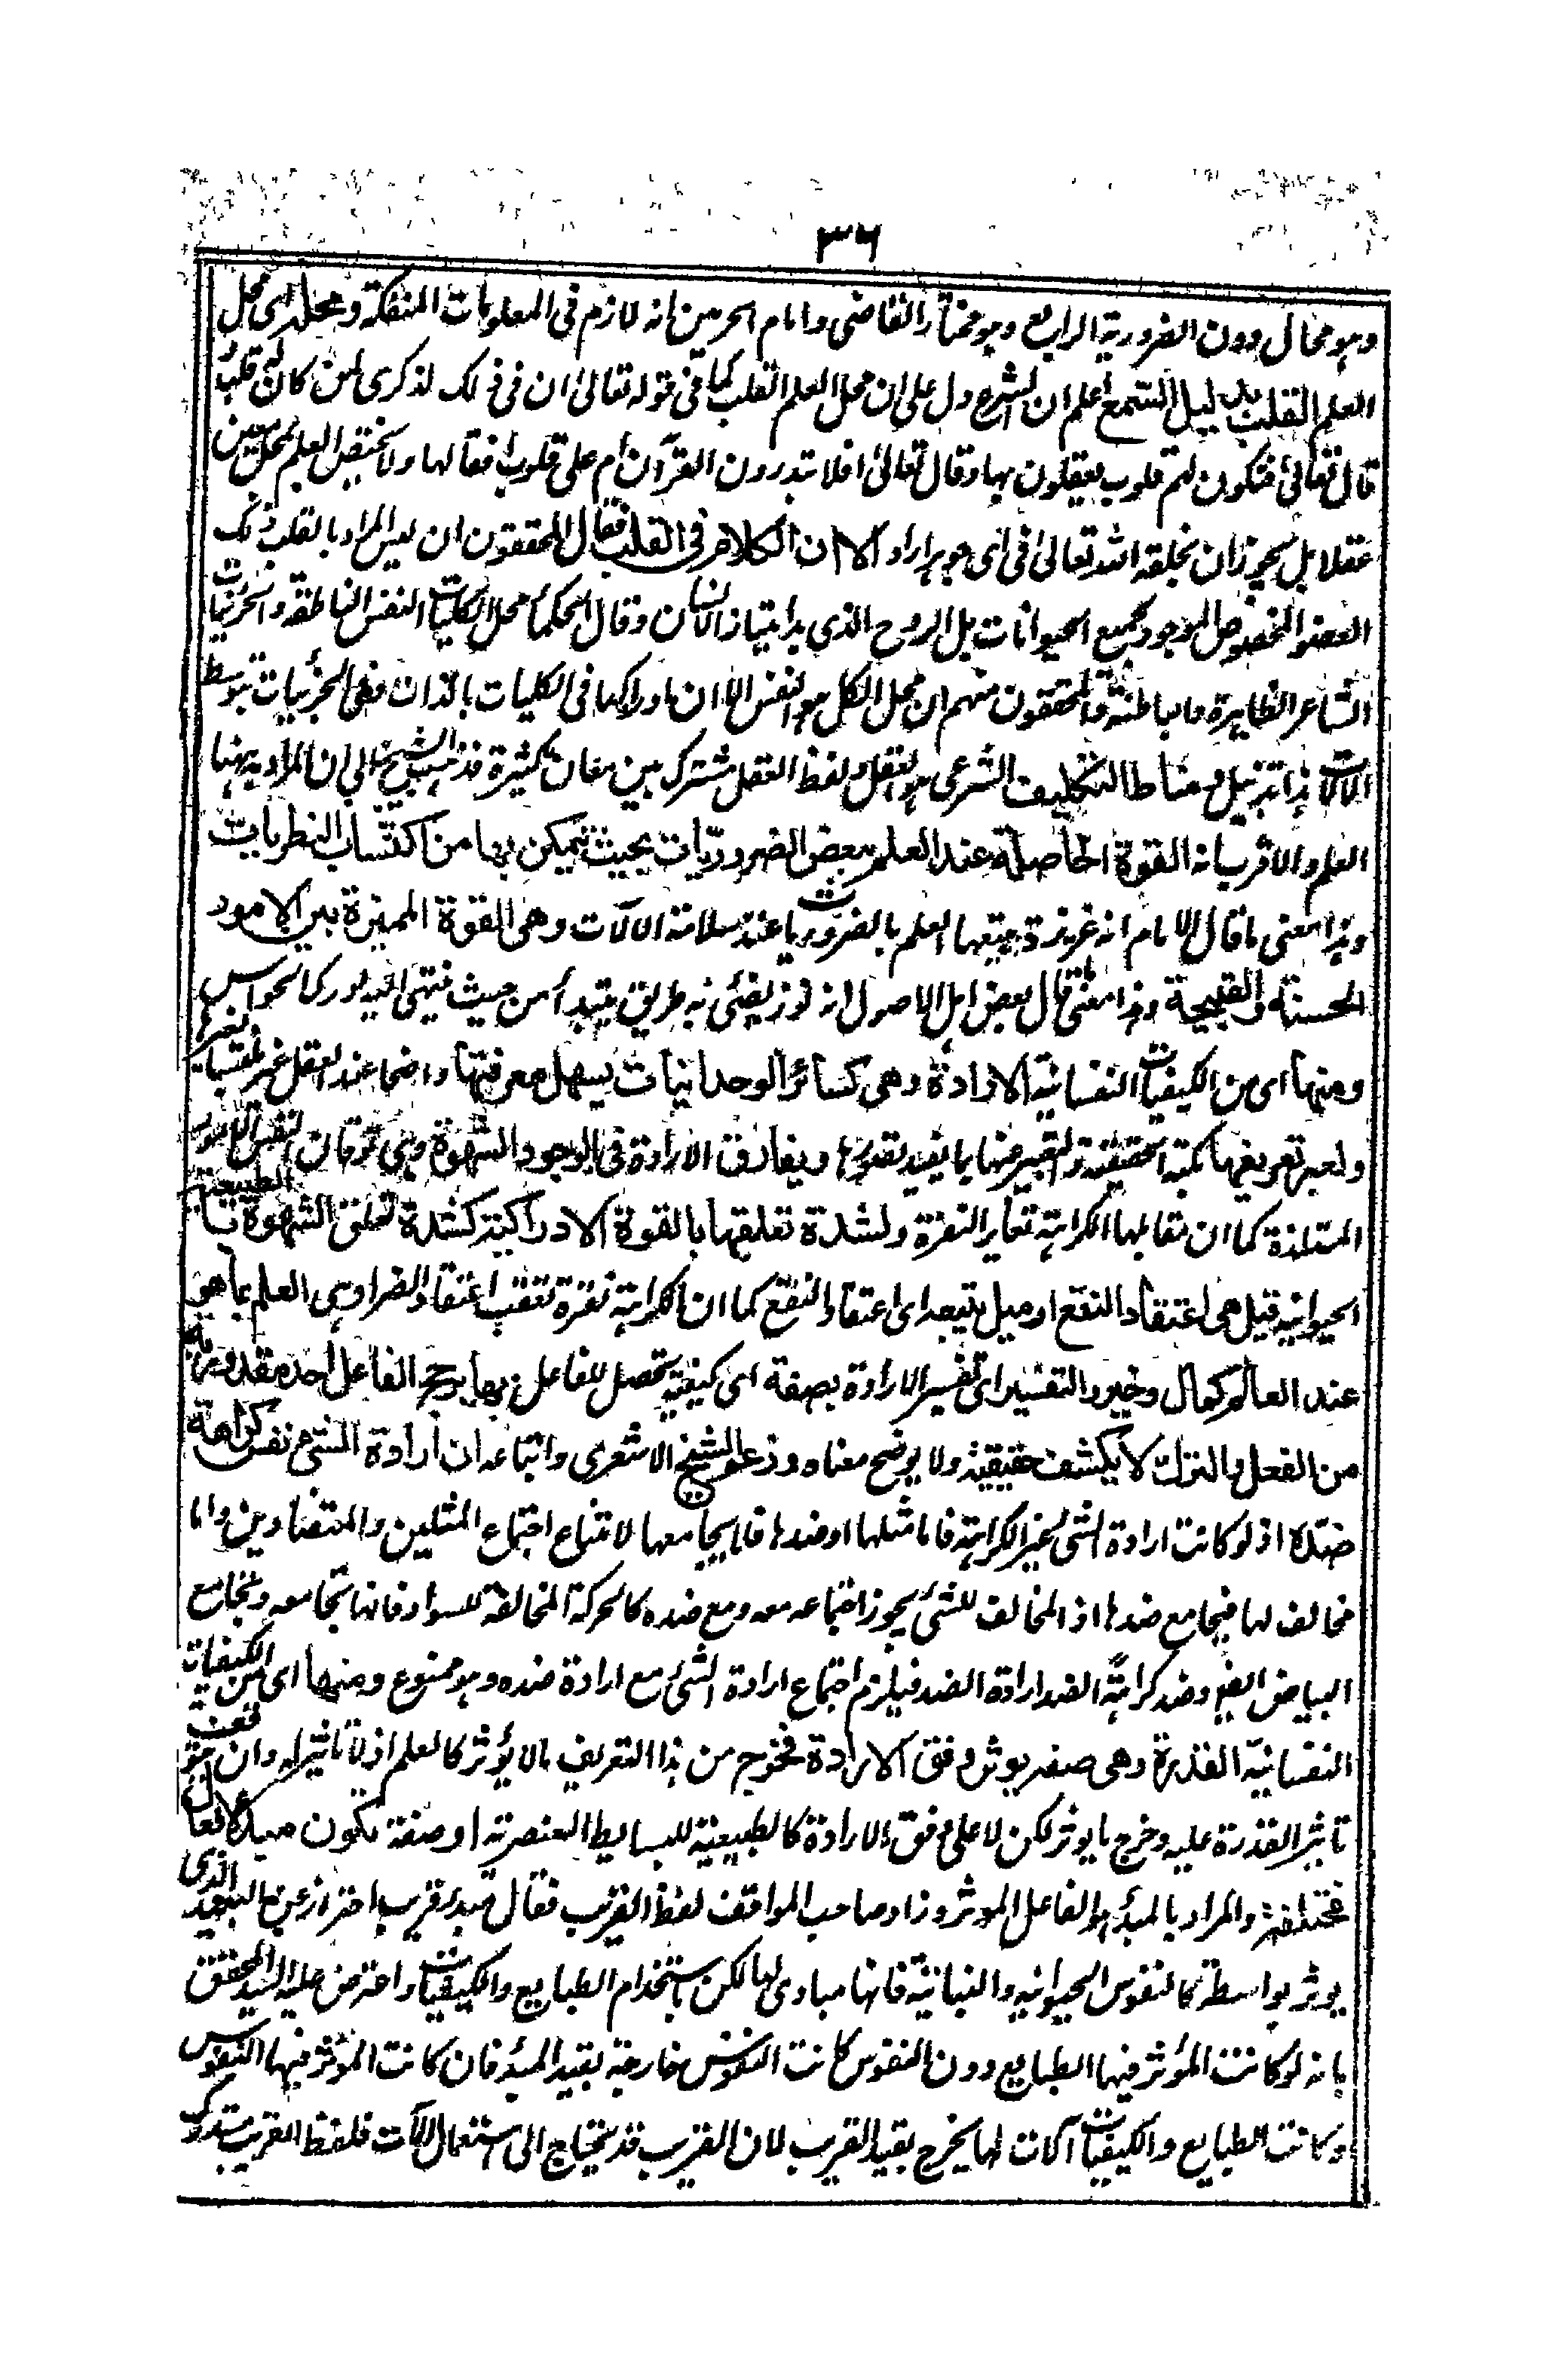 ٣٦
وهو محال دون الضرورية الرابع وهو مختار القاضى وامام الحرمين انه لازم فى المعلومات المنفكة ومحله اى محل
العلم القلب بدليل السمع اعلم ان الشرع دل على ان محل العلم القلب كما فى قوله تعالى ان فى ذلك لذكرى لمن كان له قلب
قال تعالى فتكون لهم قلوب يعقلون بها وقال تعالى افلا يتدبرون القرآن أم على قلوب أقفالها ولا يختص العلم بمحل معين
عقلا بل يجوز ان يخلقه الله تعالى فى اى جوهر اراد الا ان الكلام فى القلب فقال المحققون ان ليس المراد بالقلب ذلك
العضو المخصوص الموجود بجميع الحيوانات بل الروح الذى به امتياز الانسان وقال الحكماء محل الكليات النفس الناطقة والجزئيات
المشاعر الظاهرة والباطنة والمحققون منهم ان محل الكل هو النفس الا ان ادراكها فى الكليات بالذات وفى الجزئيات بتوسط
الآلات هذا تذييل ومناط التكليف الشرعى هو العقل ولفظ العقل مشترك بين معان كثيرة فذهب الشيخ الى ان المراد به ههنا
العلم والاقرب انه القوة الحاصلة عند العلم ببعض الضروريات بحيث يتمكن بها من اكتساب النظريات
وهذا معنى ما قال الامام انه غريزة يتبعها العلم بالضروريات عند سلامة الآلات وهى القوة المميزة بين الامور
الحسنة والقبيحة وهذا معنى ما قال بعض اهل الاصول انه نور يضئ به طريق يبتدأ من حيث ينتهى اليه درك الحواس
ومنها اى من الكيفيات النفسانية الارادة وهى كسائر الوجدانيات يسهل معرفتها واضحا عند العقل غير ملتبسة بغيرها
ولعسر تعريفها بكنه الحقيقة والتعبير عنها بما يفيد تصورها ويفارق الارادة فى الوجود الشهوة وهى توقان النفس الى الامور
المستلذة كما ان مقابلها الكراهة تغاير النفرة ولشدة تعلقها بالقوة الادراكية كشدة تعلق الشهوة بالطبيعة
الحيوانية قيل هى اعتقاد النفع او ميل يتبعه اى اعتقاد النفع كما ان الكراهة نفرة تعقب اعتقاد الضر او هى العلم بما هو
عند العالم كمال وخير والتفسير اى تفسير الارادة بصفة اى كيفية تحصل للفاعل بها يرجح الفاعل احد مقدوريه
من الفعل والترك لا يكشف حقيقته ولا يوضح معناه وزعم الشيخ الاشعرى واتباعه ان ارادة الشئ نفس كراهة
ضده اذ لو كانت ارادة الشئ غير الكراهة فاما مثلها او ضدها فلا يجامعها لامتناع اجتماع المثلين والمتضادين واما
مخالف لها فيجامع ضدها اذ المخالف للشئ يجوز اجتماعه معه ومع ضده كالحركة المخالفة للسواد فانها تجامعه وتجامع
البياض ايضا وضد كراهة الضد ارادة الضد فيلزم اجتماع ارادة الشئ مع ارادة ضده وهو ممنوع ومنها اى من الكيفيات
النفسانية القدرة وهى صفة يوثر وفق الارادة فخرج من هذا التعريف ما لا يؤثر كالعلم اذ لا تاثير له وان توقف
تاثير القدرة عليه وخرج ما يوثر لكن لا على وفق الارادة كالطبيعة للبسائط العنصرية او صفة تكون مبدء لافعال
مختلفة والمراد بالمبدء هو الفاعل الموثر وزاد صاحب المواقف لفظ القريب فقال مبدء قريب احتراز عن البعيد الذى
يوثر بواسطة كالنفوس الحيوانيه والنباتية فانها مبادى لها لكن باستخدام الطبايع والكيفيات واعترض عليه السيد المحقق
بانه لو كانت المؤثر فيها الطبايع دون النفوس كانت النفوس خارجة بقيد المبدء فان كانت المؤثر فيها النفوس
وكانت الطبايع والكيفيات آلات لها يخرج بقيد القريب لان القريب قد يحتاج الى استعمال الآلات فلفظ القريب مستدرك